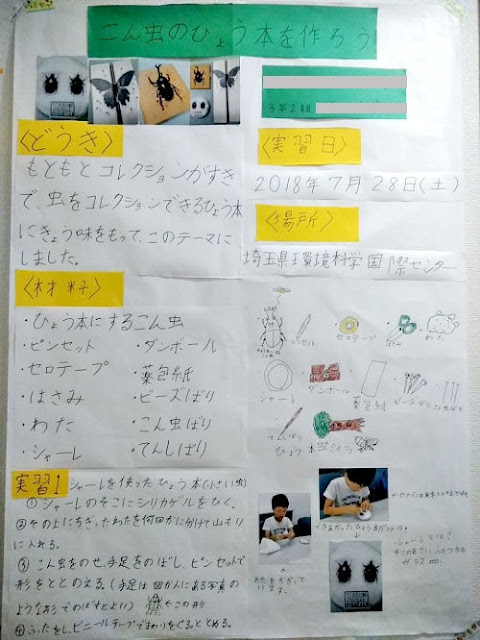 こん虫のひょう本を作ろう
3年2組
〈どうき〉
もともとコレクションがすき
で、虫をコレクションできるひょう本
にきょう味をもって、このテーマに
しました。
〈実習日〉
2018年7月28日(土)
〈場所〉
埼玉県環境科学国際センター
〈材料〉
・ひょう本にするこん虫
・ピンセット
・ダンボール
・セロテープ
・薬包紙
・はさみ
・ビーズばり
・わた
・こん虫ばり
・シャーレ
・てんしばり
ピンセット
セロテープ
はさみ
わた
シャーレ
ダンボール
薬包紙
ビーズばり
こん虫ばり
てんしばり
実習1 シャーレを使ったひょう本(小さい虫)
①シャーレのそこにシリカゲルをひく。
②その上にちぎったわたを何回かに分けて山もり
に入れる。
③こん虫をのせ、手足をのばし、ピンセットで
形をととのえる。(手足は図かんにある写真の
ような形でのばすとよい) ←この形
④ふたをし、ビニールテープでまわりをぐるっととめる。
わたをちぎって
います。
・シャーレとは
ガラス皿。